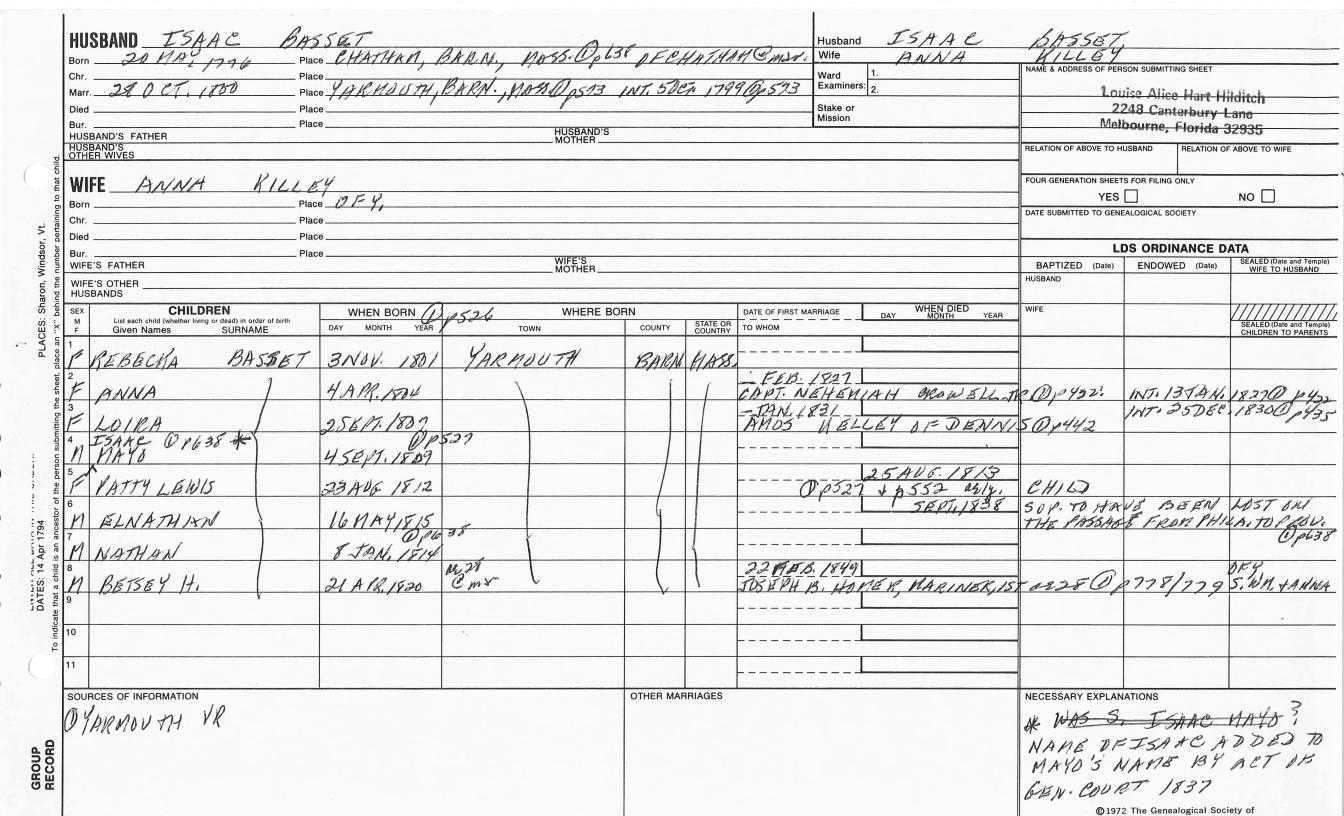 HUSBAND ISAAC BASSET
Born 20 MAY 1776 Place CHATHAM, BARN., MASS. ① p638 OF CHATHAM @ mar.
Chr. Place
Marr. 28 OCT. 1800 Place YARMOUTH, BARN., MASS ① p573 INT. 5 DEC. 1799 ① p573
Died Place
Bur. Place
HUSBAND'S FATHER HUSBAND'S MOTHER
HUSBAND'S OTHER WIVES
Husband ISAAC BASSET
Wife ANNA KILLEY
Ward Examiners: 1.
2.
Stake or Mission
NAME & ADDRESS OF PERSON SUBMITTING SHEET
Louise Alice Hart Hilditch
2248 Canterbury Lane
Melbourne, Florida 32935
RELATION OF ABOVE TO HUSBAND RELATION OF ABOVE TO WIFE
FOUR GENERATION SHEETS FOR FILING ONLY
YES NO
DATE SUBMITTED TO GENEALOGICAL SOCIETY
WIFE ANNA KILLEY
Born Place OF Y,
Chr. Place
Died Place
Bur. Place
WIFE'S FATHER WIFE'S MOTHER
WIFE'S OTHER HUSBANDS
LDS ORDINANCE DATA
BAPTIZED (Date) ENDOWED (Date) SEALED (Date and Temple) WIFE TO HUSBAND
HUSBAND
WIFE
SEALED (Date and Temple) CHILDREN TO PARENTS
SEX M F
CHILDREN
List each child (whether living or dead) in order of birth
Given Names SURNAME
WHEN BORN ① p526 WHERE BORN
DAY MONTH YEAR TOWN COUNTY STATE OR COUNTRY
DATE OF FIRST MARRIAGE
TO WHOM
WHEN DIED
DAY MONTH YEAR
1 F REBECKA BASSET 3 NOV. 1801 YARMOUTH BARN MASS.
2 FEB. 1827
F ANNA 4 APR. 1804 CAPT. NEHEMIAH CROWELL JR ① p422. INT. 13 JAN. 1827 ① p422
3 JAN. 1831 INT. 25 DEC. 1830 ① p435
F LOIRA 2 SEPT. 1807 AMOS KELLEY OF DENNIS ① p442
4 ISAAC ① p638 * ① p527
M MAYO 4 SEPT. 1809
5 25 AUG. 1813
F PATTY LEWIS 23 AUG 1812 ① p527 + p552 CHILD
6 SEPT. 1838 SUP. TO HAVE BEEN LOST ON
M ELNATHAN 16 MAY 1815 THE PASSAGE FROM PHILA. TO PROV.
7 ① p638 ① p638
M NATHAN 8 JAN. 1814
8 22 FEB. 1849 OF Y
M BETSEY H. 21 APR. 1820 @ mar JOSEPH B. HOMER, MARINER, 1ST ae 28 ① p778/779 S. WM. + ANNA
9
10
11
SOURCES OF INFORMATION
① YARMOUTH VR
OTHER MARRIAGES
NECESSARY EXPLANATIONS
* WAS S. ISAAC MAYO?
NAME OF ISAAC ADDED TO
MAYO'S NAME BY ACT OF
GEN. COURT 1837
©1972 The Genealogical Society of
PLACES: Sharon, Windsor, Vt.
DATES: 14 Apr 1794
To indicate that a child is an ancestor of the person submitting the sheet, place an "X" behind the number pertaining to that child.
GROUP
RECORD